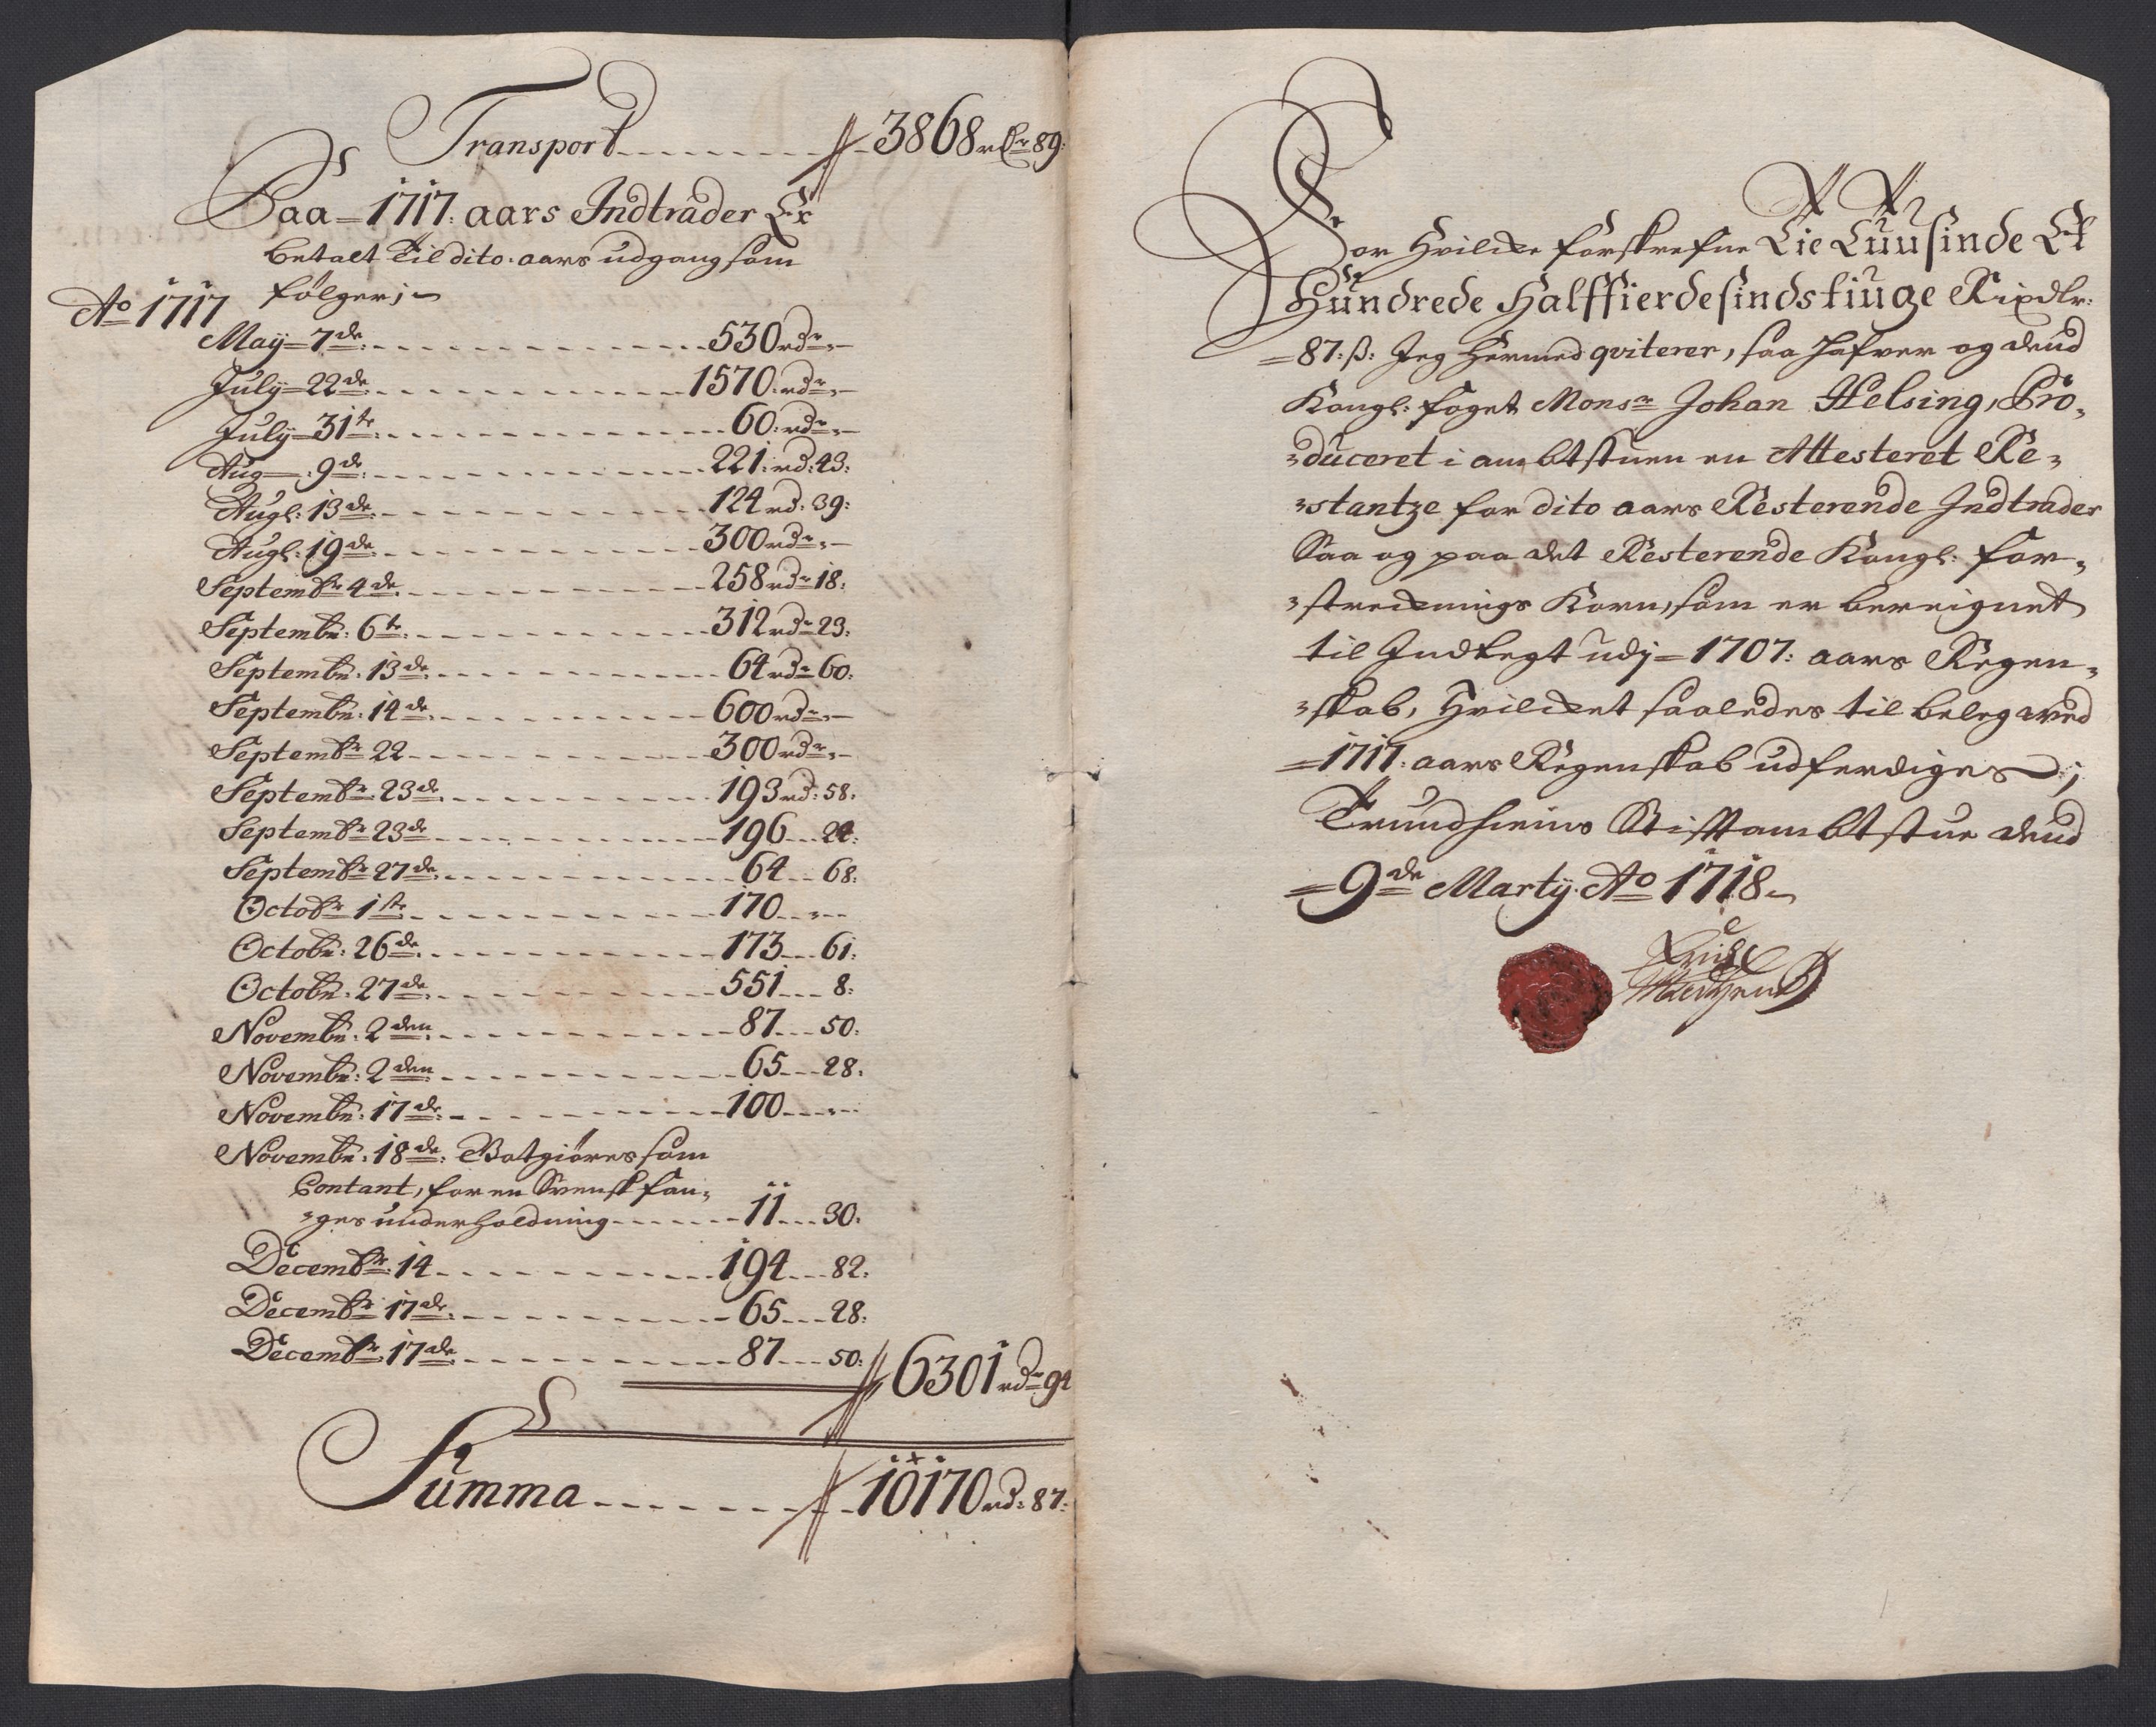 Transport 3868 rdr 89:
Paa 1717: aars Indtrader Er
betalt til dito aars udgang som
følger;
Ao 1717
May 7de 530 rdr
July 22de 1570 rdr
July 31te 60 rdr
Aug 9de 221 rd: 43:
Augl: 13de 124 rd: 39:
Augl: 19de 300 rdr
Septembr 4de 258 rdr 18:
Septembr: 6te 312 rdr 23:
Septembr: 13de 64 rdr 60:
Septembr: 14de 600 rdr
Septembr 22 300 rdr
Septembr 23de 193 rd: 58:
Septembr 23de 196 24:
Septembr 27de 64 68:
Octobr 1ste 170
Octobr: 26de 173 61:
Octobr: 27de 551 8:
Novembr: 2den 87 50:
Novembr: 2den 65 28:
Novembr: 17de 100
Novembr: 18de: Botgiøres som
Contant, for en Svensk fan-
-ges underholdning 11 30:
Decembr 14 194 82:
Decembr 17de 65 28:
Decembr 17de 87 50:
6301 rdr 94
Summa 10170 rd: 87:
For Hvilke forskrefne Tie Tuusinde Et
Hundrede Halffierdesindstiuge Rixdlr:
87: ß: Jeg Hermed qviterer, saa hafver og dend
Kongl: foget Monsr Johan Helsing, Pro-
-duceret i ambtstuen en Attesteret Re-
-stantze for dito aars Resterende Indtrader
Saa og paa det Resterende Kongl: for-
-streknings Korn, som er bereignet
til Indtegt udj 1707: aars Regen-
-skab, Hvilket saaledes til beleg ved
1717: aars Regenskab udferdiges;
Trundhiems Stifftambtstue dend
9de Martij Ao 1718